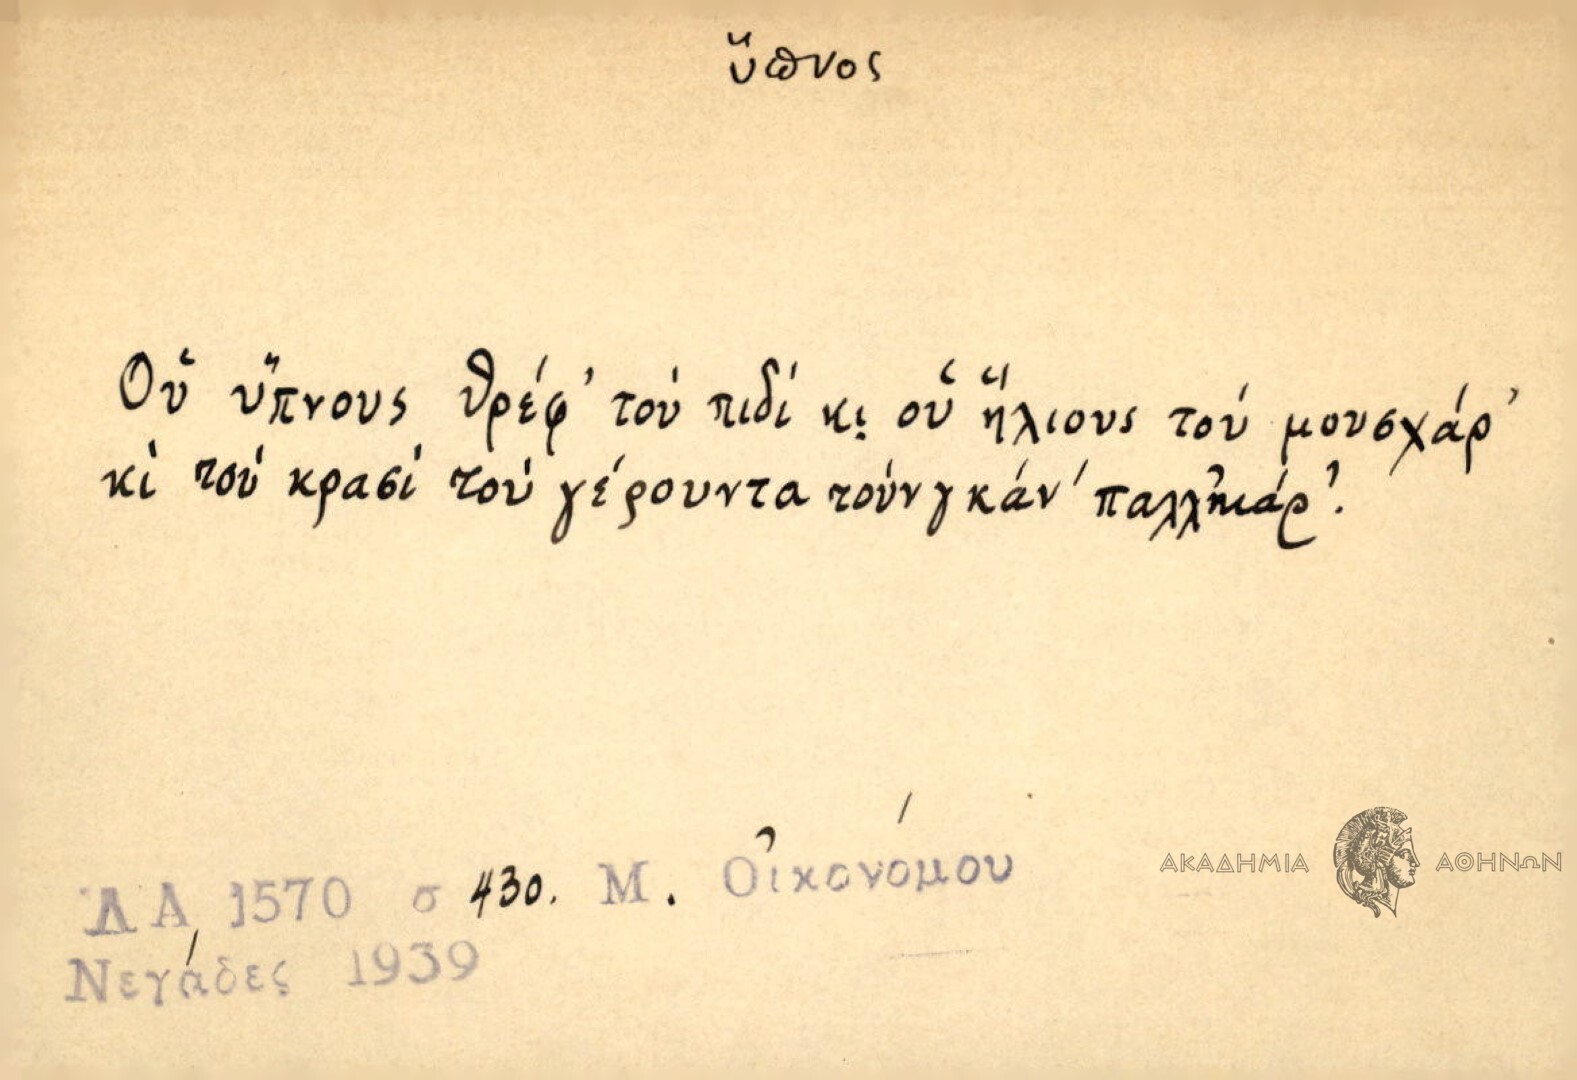 ὕπνος
Οὑ ὕπνους θρέφ' τοὺ πιδὶ κι οὑ ἥλιους τοὺ μουσχάρ'
κὶ τοὺ κρασὶ τοὺ γέρουντα τοὺνγκάν'
ΛΑ 1570 σ 430. Μ. Οἰκονόμου
Νεγάδες 1939
ΑΚΑΔΗΜΙΑ ΑΘΗΝΩΝ